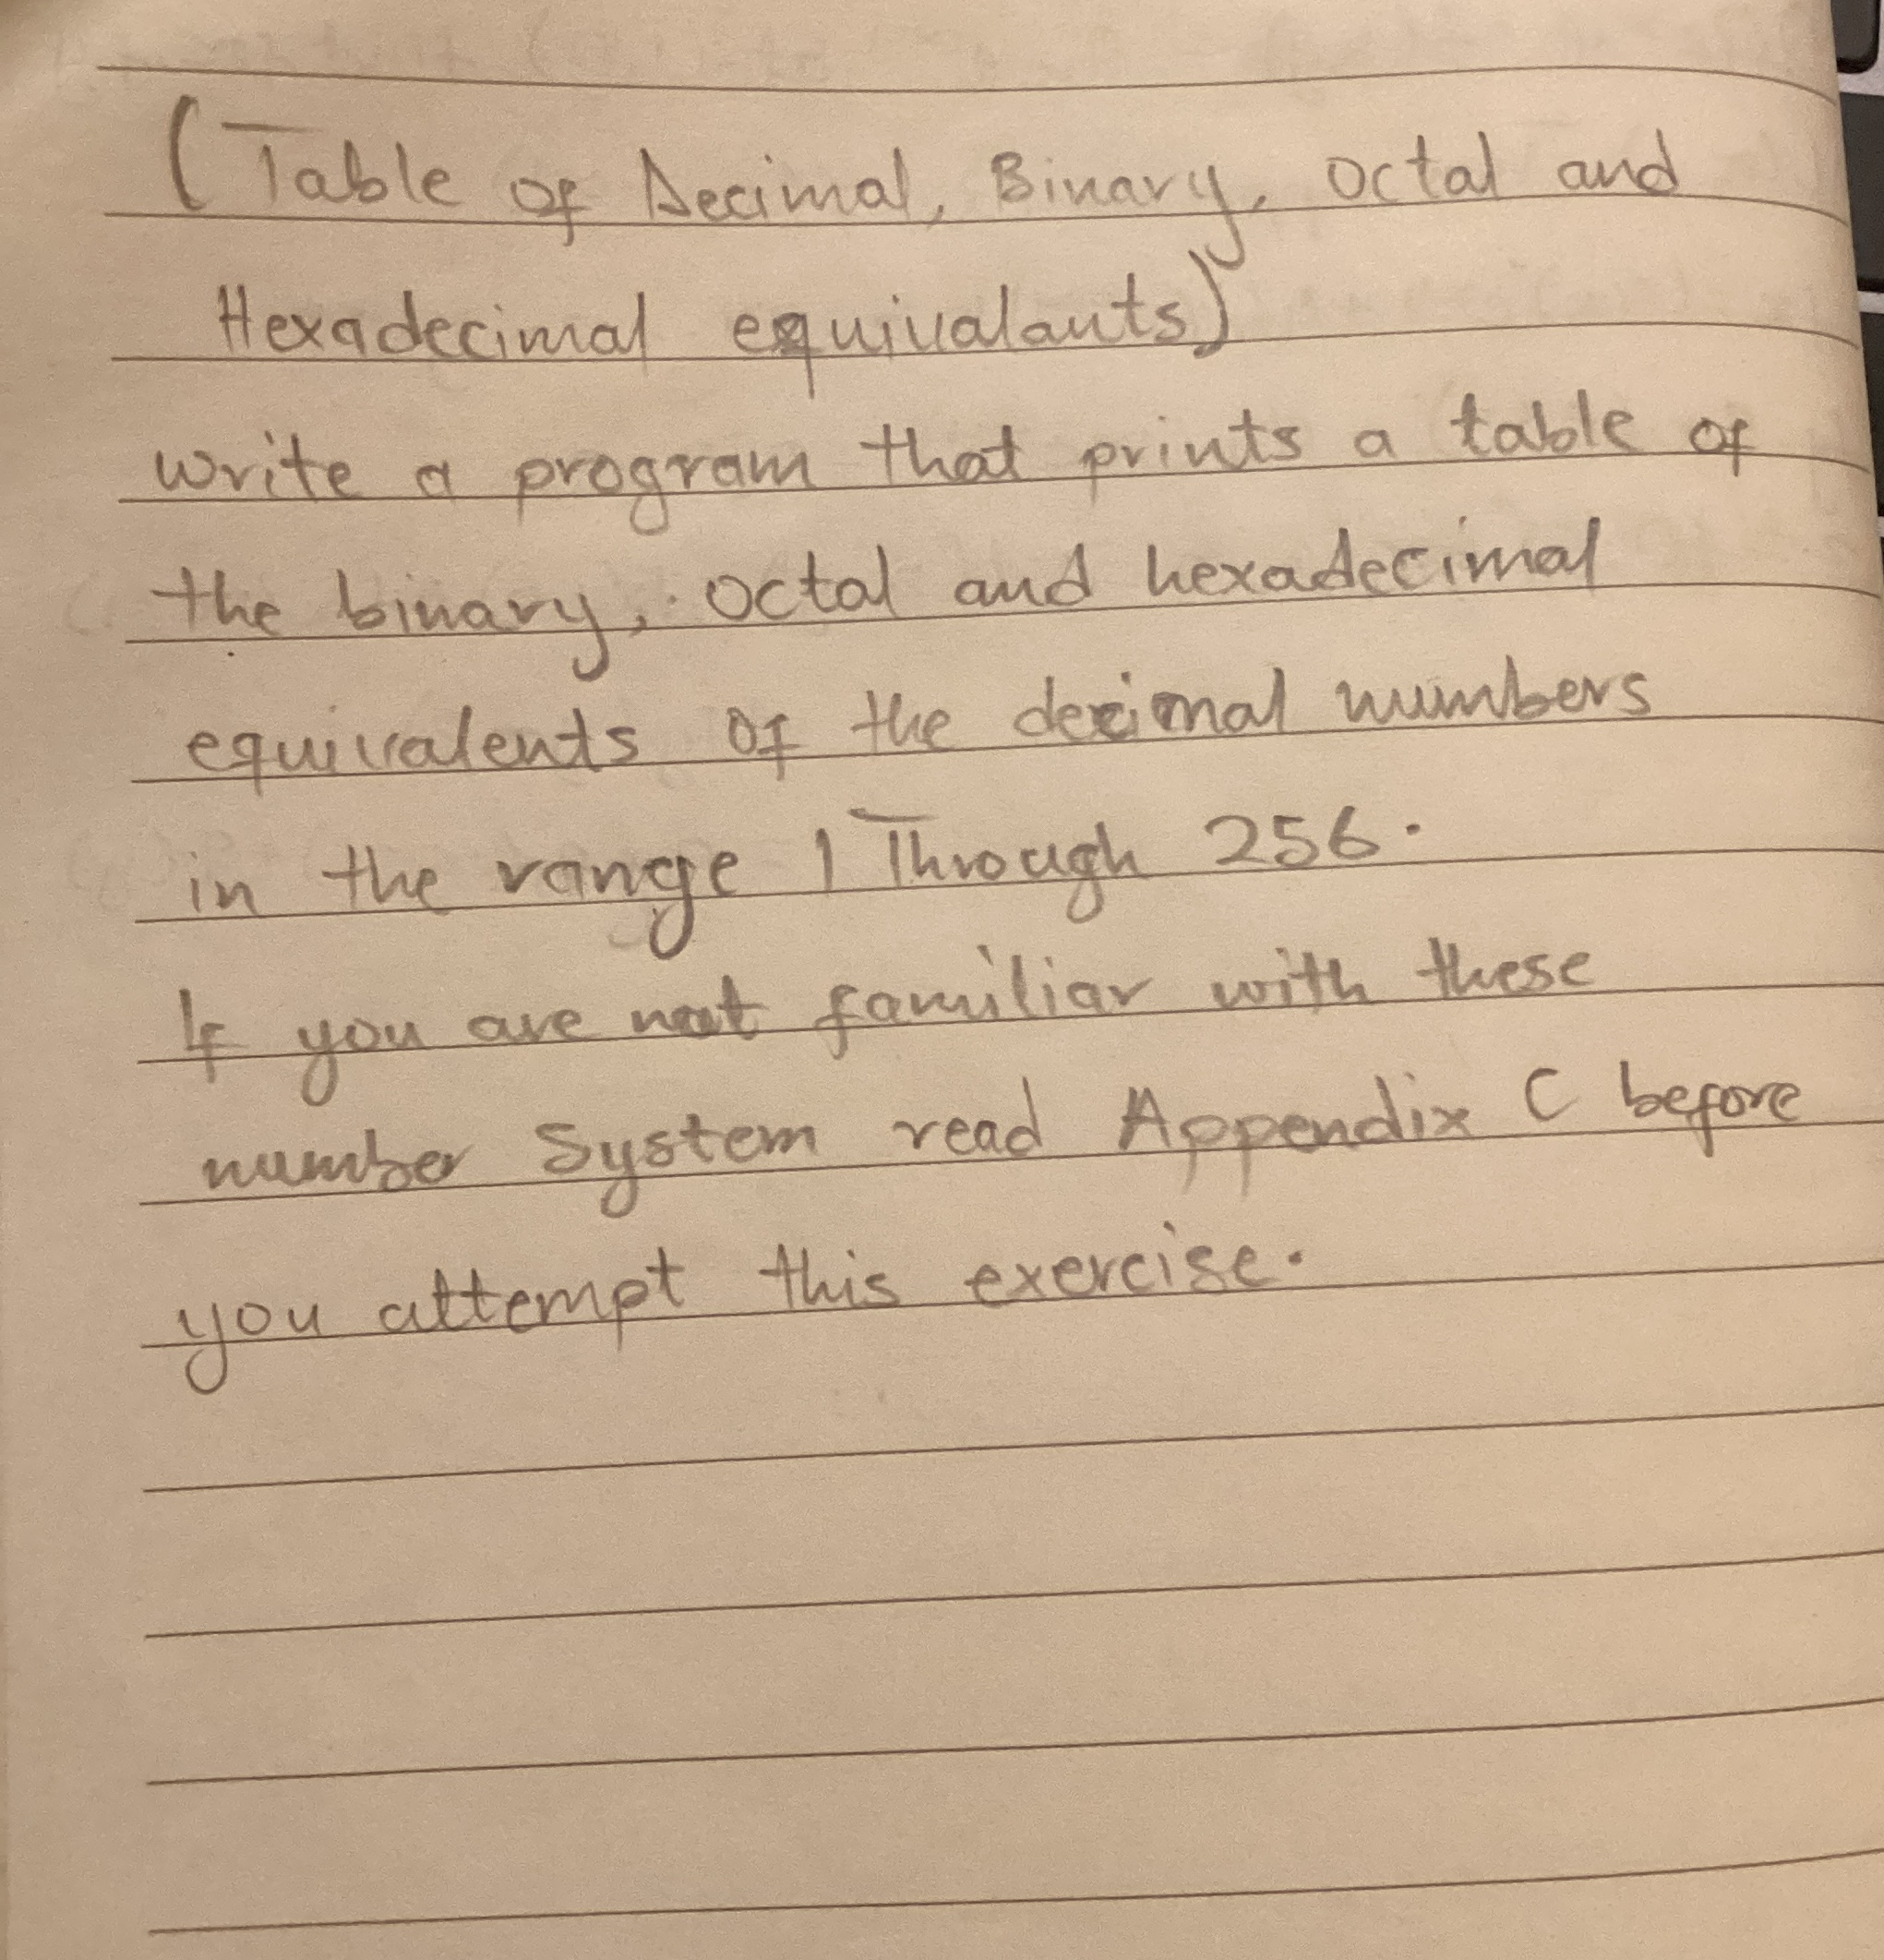 (Table of Decimal, Binary, Octal and
Hexadecimal equivalants)
write a program that prints a table of
the binary, Octal and hexadecimal
equivalents of the decimal numbers
in the range 1 Through 256.
If you are not familiar with these
number System read Appendix C before
you attempt this exercise.